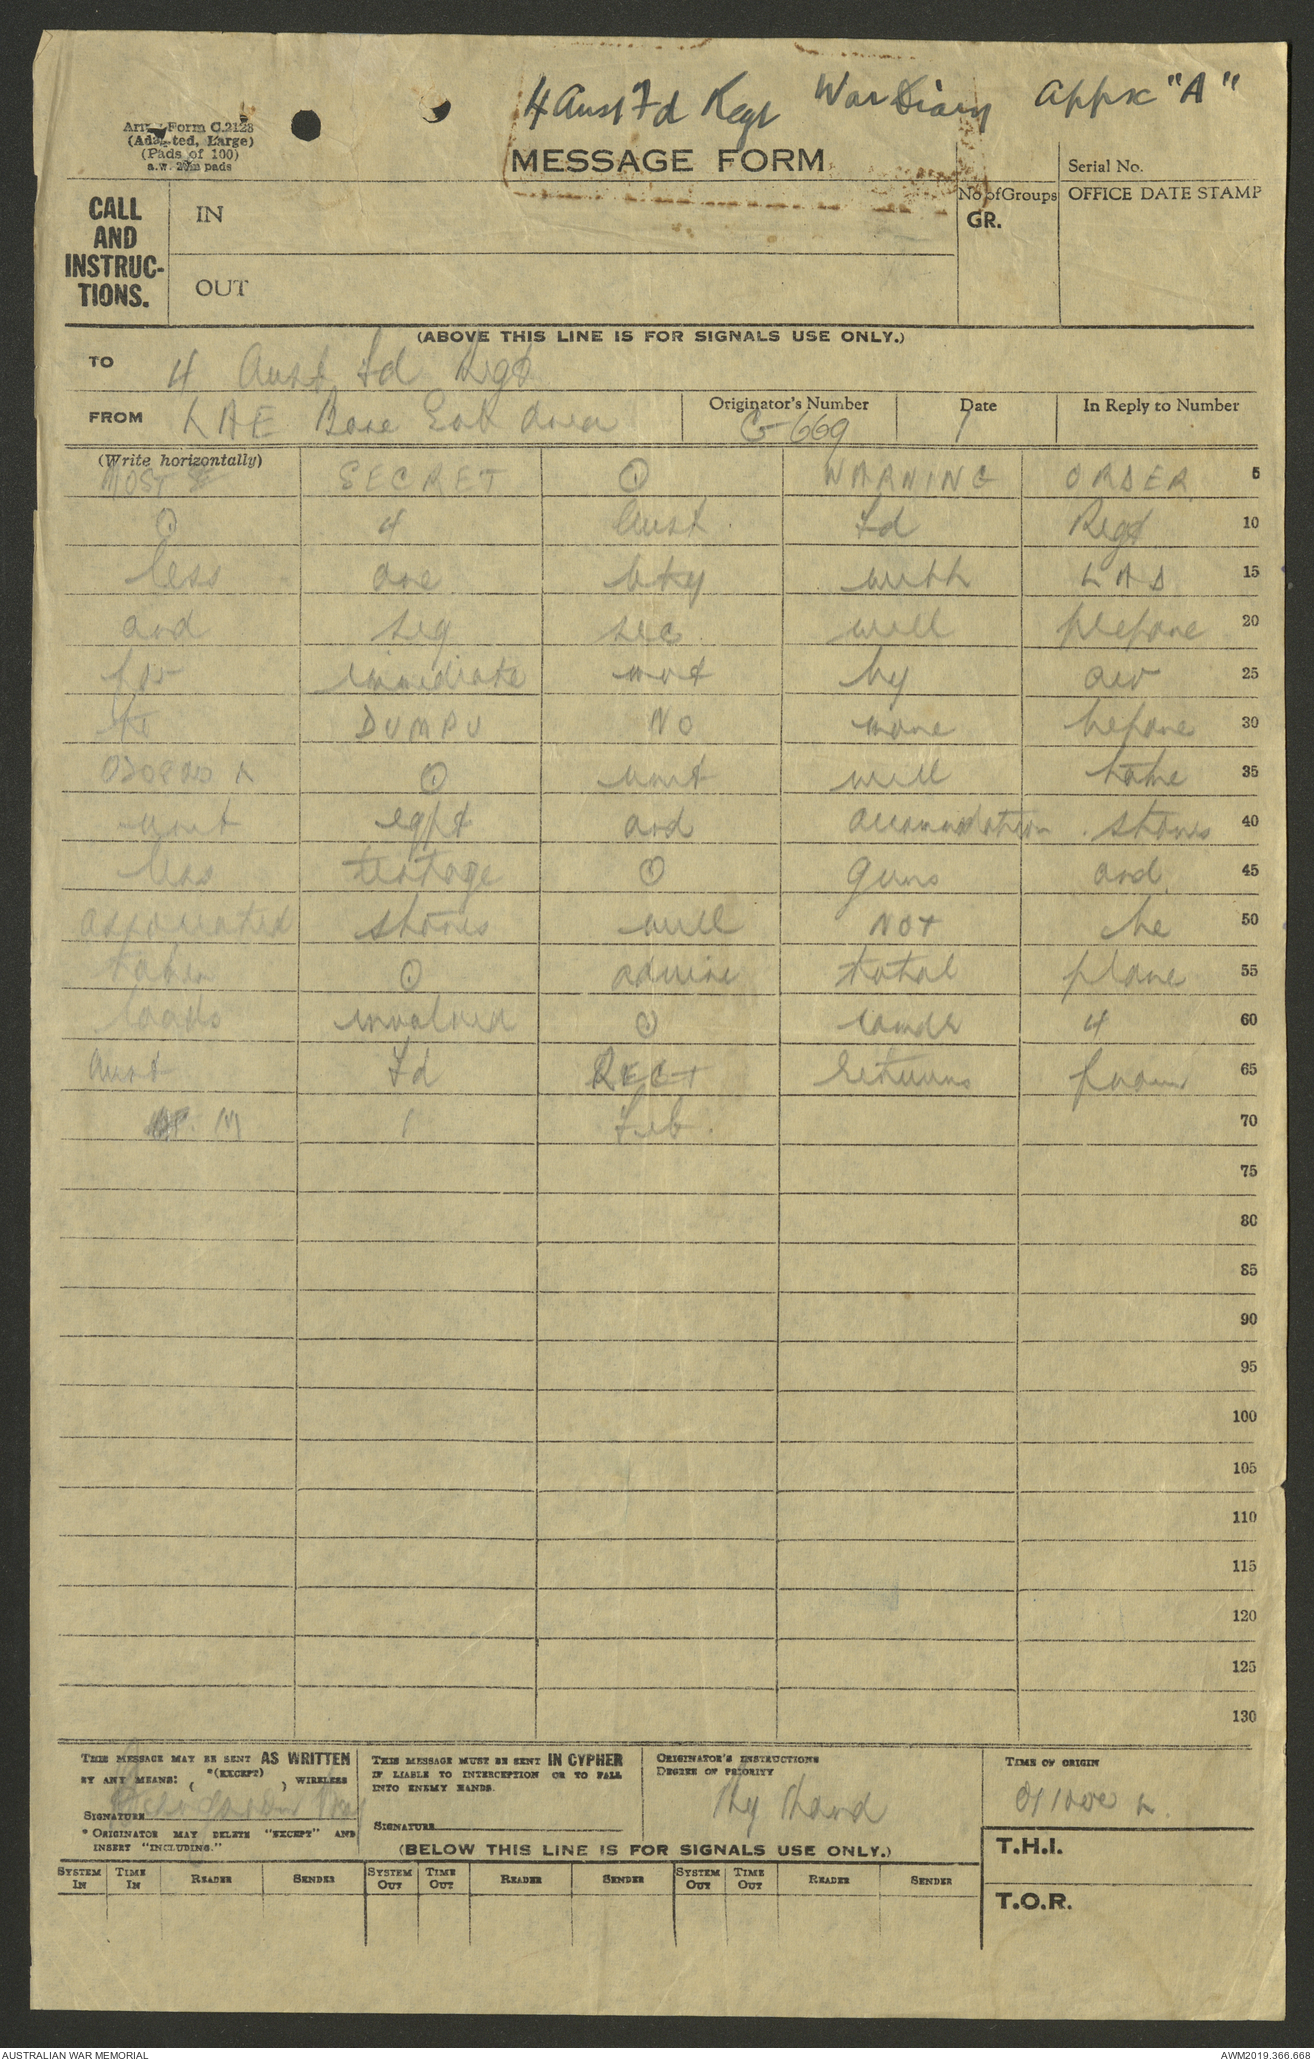 4 Aust Fd Regt War Diary Appx "A"
Army Form C.2128
(Adapted, Large)
(Pads of 100)
MESSAGE FORM
Serial No.
CALL AND INSTRUC-TIONS.
IN
No of Groups
GR.
OFFICE DATE STAMP
OUT
(ABOVE THIS LINE IS FOR SIGNALS USE ONLY.)
TO 4 Aust Fd Regt
FROM LAE Base Sub Area
Originator's Number G-669
Date 1
In Reply to Number
(Write horizontally)
MOST SECRET ⊙ WARNING ORDER 5
⊙ 4 Aust Fd Regt 10
less one bty with LAD 15
and sig sec will prepare 20
for immediate mov't by air 25
to DUMPU NO move before 30
⊙ unit will take 35
unit eqpt and accommodation stores 40
less tentage ⊙ guns and 45
associated stores will NOT be 50
taken ⊙ advise total plane 55
loads involved ⊙ comdr 4 60
Aust Fd REGT returns from 65
1 Feb. 70
75
80
85
90
95
100
105
110
115
120
125
130
THIS MESSAGE MAY BE SENT AS WRITTEN
BY ANY MEANS: *(EXCEPT) ( ) WIRELESS
SIGNATURE
* ORIGINATOR MAY DELETE "EXCEPT" AND
INSERT "INCLUDING."
THIS MESSAGE MUST BE SENT IN CYPHER
IF LIABLE TO INTERCEPTION OR TO FALL
INTO ENEMY HANDS.
SIGNATURE
ORIGINATOR'S INSTRUCTIONS
DEGREE OF PRIORITY
By Hand
TIME OF ORIGIN
011000 L
T.H.I.
(BELOW THIS LINE IS FOR SIGNALS USE ONLY.)
SYSTEM IN TIME IN READER SENDER SYSTEM OUT TIME OUT READER SENDER SYSTEM OUT TIME OUT READER SENDER
T.O.R.
AUSTRALIAN WAR MEMORIAL
AWM2019.366.668